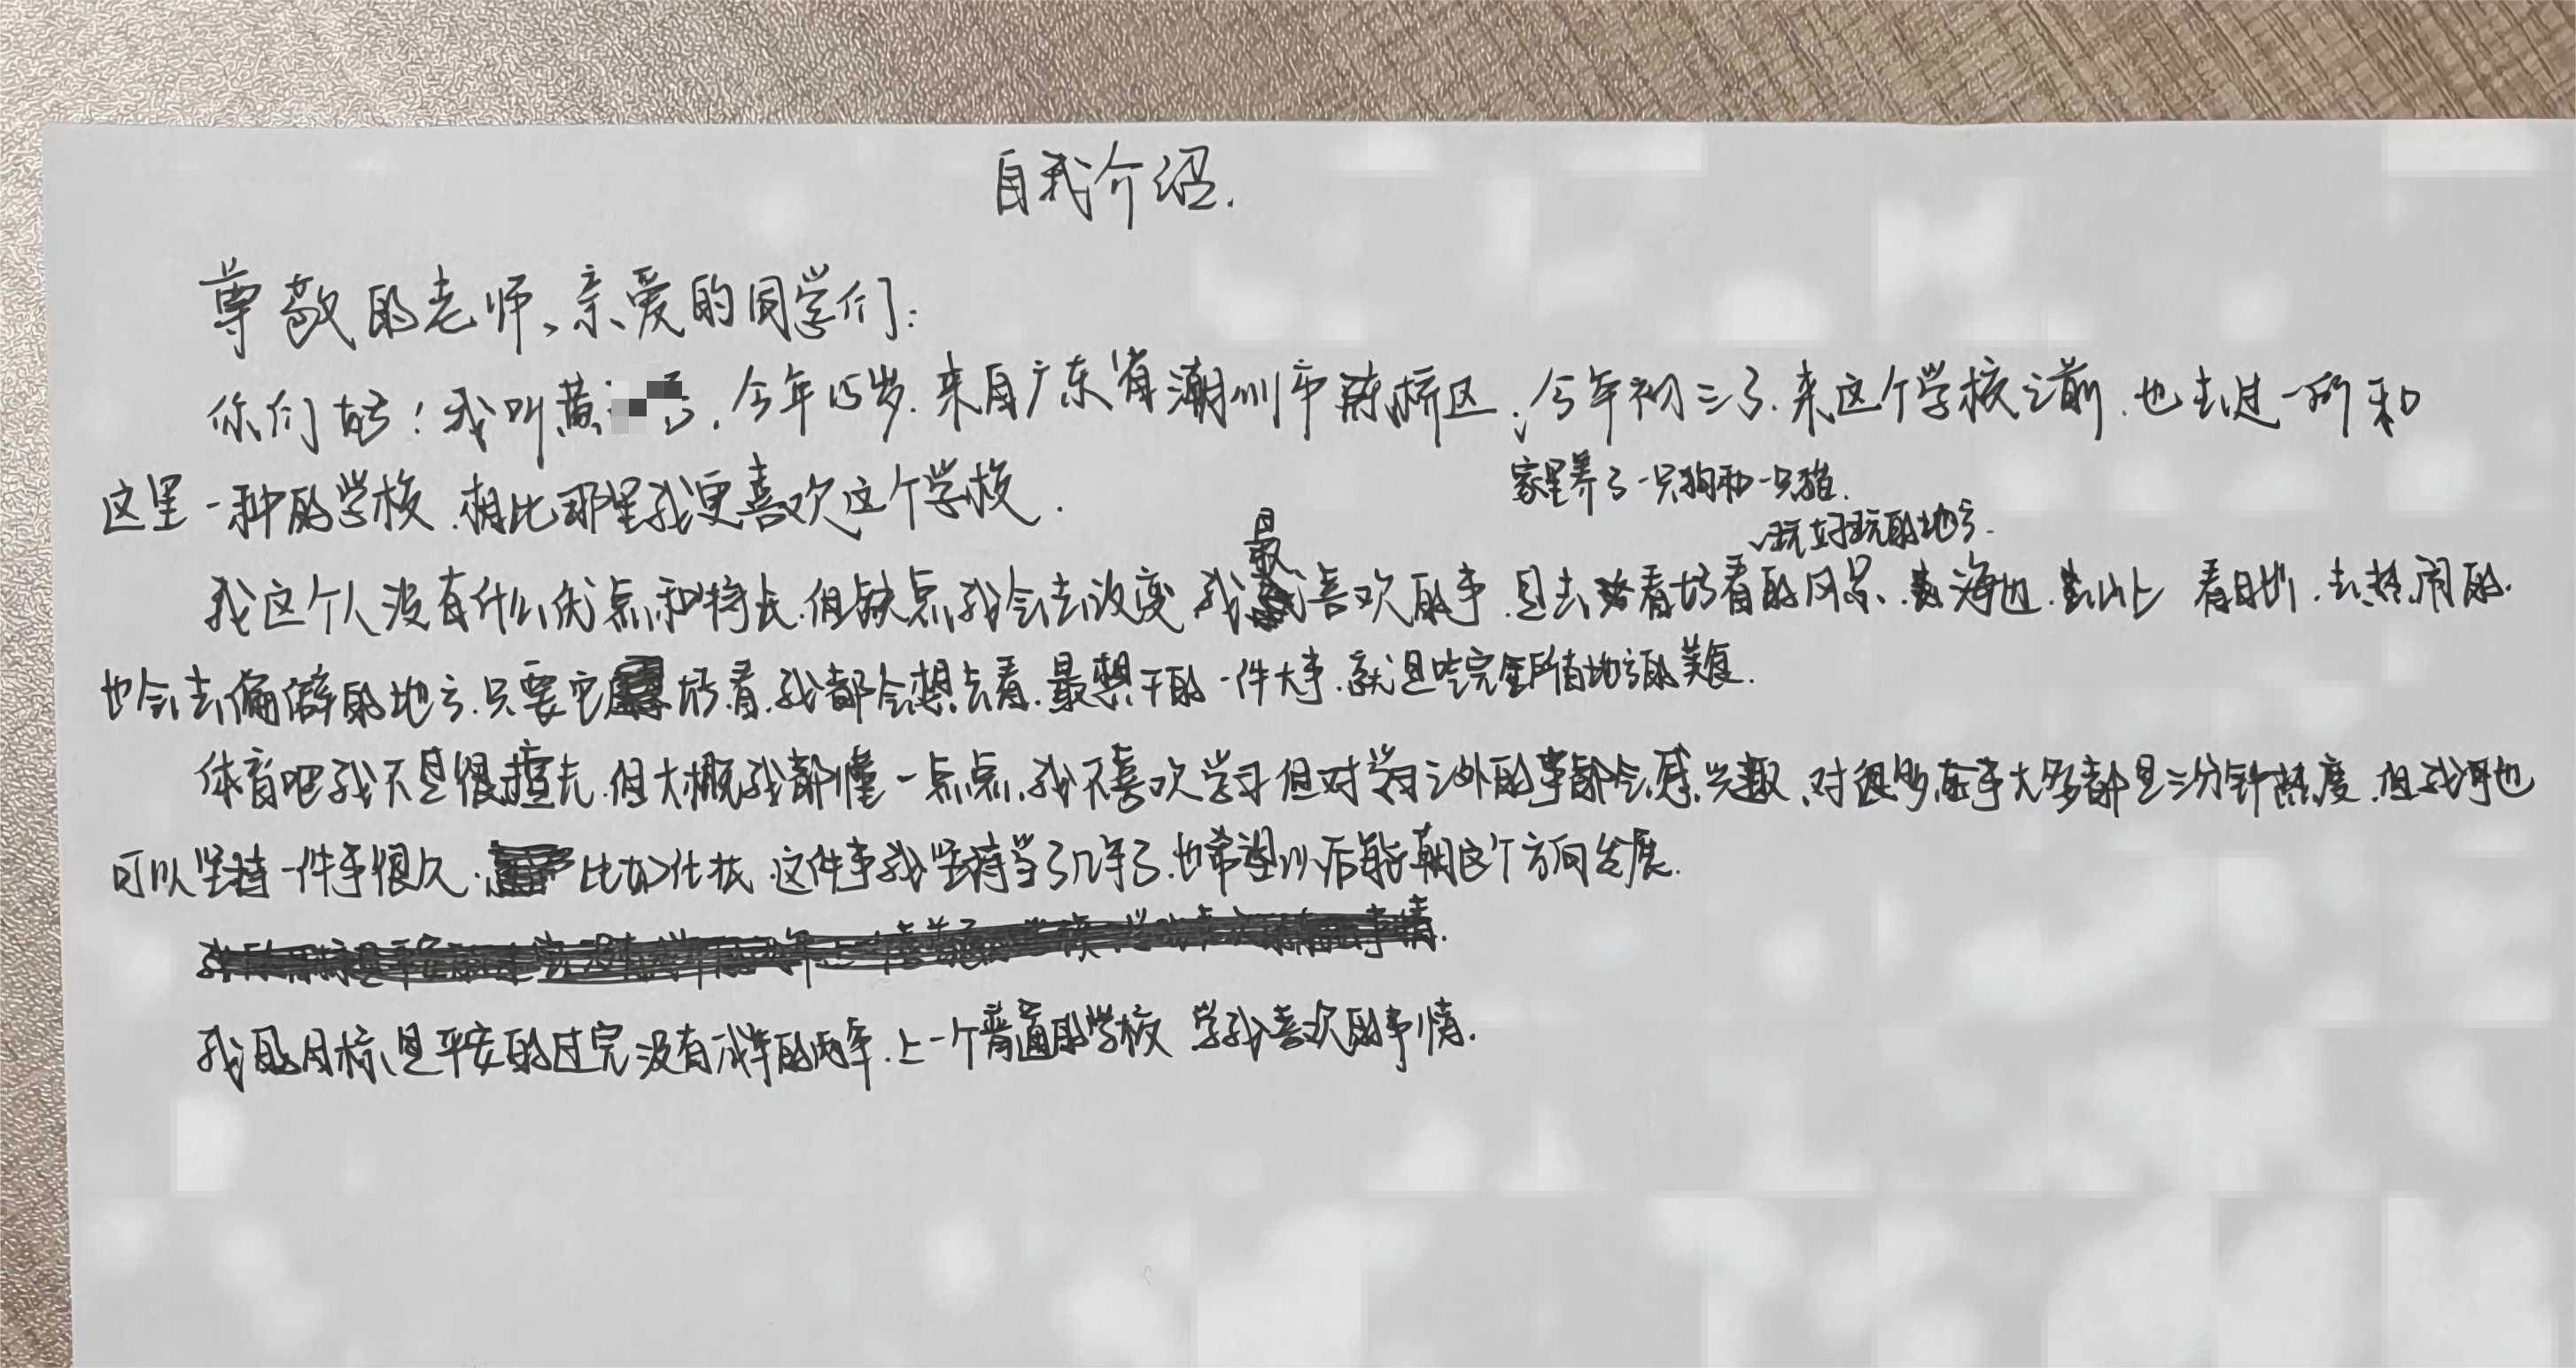 自我介绍.
尊敬的老师、亲爱的同学们:
你们好!我叫黄 , 今年15岁.来自广东省潮州市 桥区,今年初三了.来这个学校之前.也去过一所和
家里养了一只狗和一只猫.
这里一种的学校.相比那里我更喜欢这个学校.
最
玩好玩的地方.
我这个人没有什么优点和特长.但缺点我会去改变.我喜欢的事.是去看好看的风景、海边.去山上 看日出.去热闹的.
也会去偏僻的地方.只要它好看.我都会想去看.最想干的一件大事.就是吃完全所有地方的美食.
体育吧我不是很擅长.但大概我都懂一点点.我不喜欢学习但对学习之外的事都会感兴趣.对很多 事大多都是三分钟热度.但我 也
可以坚持一件事很久. 比如化妆.这件事我坚持 了几年了.也希望以后能朝这个方向发展.
我的目标是平安的过完没有成年的两年.上一个普通的学校 学我喜欢的事情.